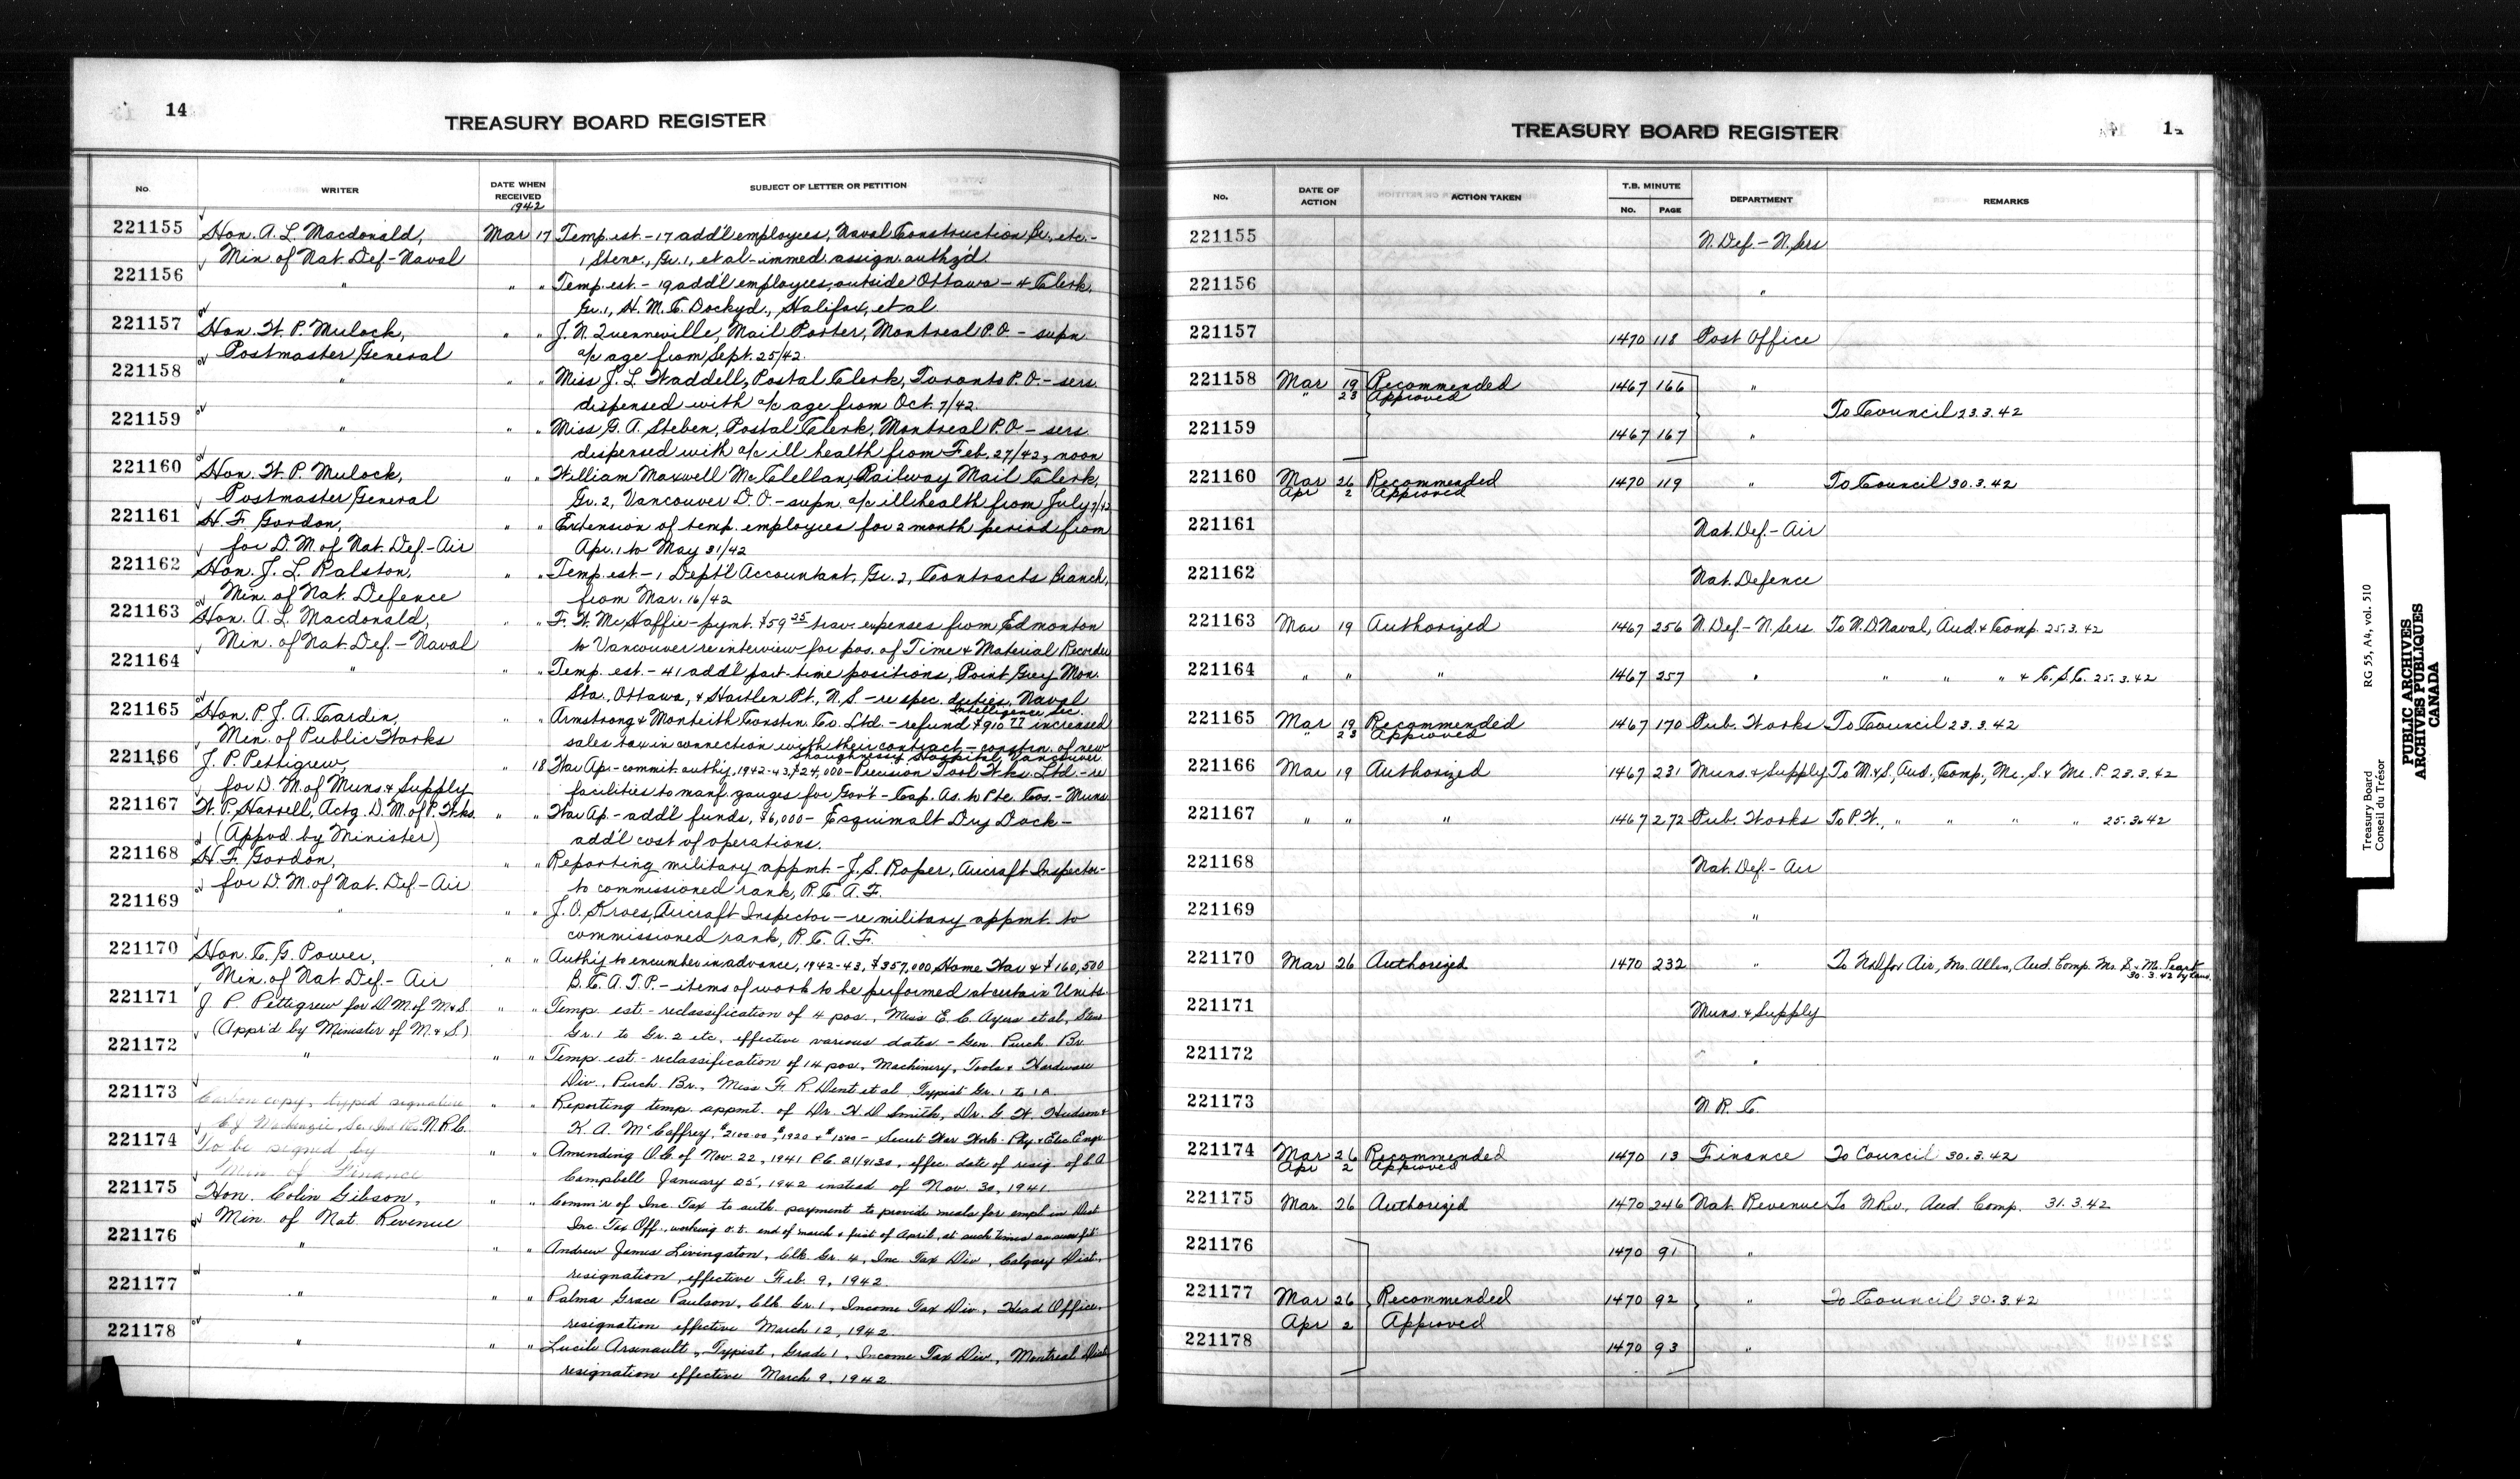 14
TREASURY BOARD REGISTER
No. WRITER DATE WHEN RECEIVED SUBJECT OF LETTER OR PETITION
1942
221155 Hon. A. L. Macdonald, Mar 17 Temp. est. - 17 add'l employees, Naval Construction Br., etc. -
Min. of Nat. Def - Naval 1 Steno., Gr. 1, et al - immed. assign. auth'z'd
221156 " " " Temp. est. - 19 add'l employees, outside Ottawa - 4 Clerk,
Gr. 1, H. M. C. Dockyd., Halifax, et al
221157 Hon. W. P. Mulock, " " J. N. Quenneville, Mail Porter, Montreal P.O. - supn
Postmaster General a/c age from Sept. 25/42.
221158 " " " Miss J. L. Waddell, Postal Clerk, Toronto P.O. - sers.
dispensed with a/c age from Oct. 7/42.
221159 " " " Miss G. A. Steben, Postal Clerk, Montreal P.O. - sers
dispensed with a/c ill health from Feb. 27/42, noon
221160 Hon. W. P. Mulock, " " William Maxwell McClellan, Railway Mail Clerk,
Postmaster General Gr. 2, Vancouver D.O. - supn. a/c ill health from July 7/42
221161 H. F. Gordon, " " Extension of temp. employees for 2 month period from
for D. M. of Nat. Def. - Air Apr. 1 to May 31/42
221162 Hon. J. L. Ralston, " " Temp. est. - 1 Dept'l Accountant, Gr. 2, Contracts Branch,
Min. of Nat. Defence from Mar. 16/42
221163 Hon. A. L. Macdonald, " " F. W. McHaffie - pymt. $59 35 trav. expenses from Edmonton
Min. of Nat. Def. - Naval to Vancouver re interview for pos. of Time & Material Recorder
221164 " " " Temp. est. - 41 add'l part-time positions, Point Grey Mon.
Sta., Ottawa, & Hartlen Pt., N.S. - re spec. duties, Naval
Intelligence Sec.
221165 Hon. P. J. A. Cardin, " " Armstrong & Monteith Constrn. Co. Ltd. - refund $910 77 increased
Min. of Public Works sales tax in connection with their contract - constrn. of new
Shaughnessy Hospital, Vancouver
221166 J. P. Pettigrew, " 18 War Ap. - commit. auth'y, 1942-43, $24,000 - Precision Tool Wks. Ltd. - re
for D. M. of Muns. & Supply facilities to manf. gauges for Gov't - Cap. As. to Pte. Cos. - Muns
221167 W. P. Harrell, Actg. D. M. of P. Wks. " " War Ap. - add'l funds, $6,000 - Esquimalt Dry Dock -
(Appvd. by Minister) add'l cost of operations.
221168 H. F. Gordon, " " Reporting military appmt. - J. S. Roper, Aircraft Inspector -
for D. M. of Nat. Def. - Air to commissioned rank, R. C. A. F.
221169 " " " J. O. Kroes, Aircraft Inspector - re military appmt. to
commissioned rank, R. C. A. F.
221170 Hon. C. G. Power, " " Auth'y to encumber in advance, 1942-43, $357,000 Home War & $160,500
Min. of Nat. Def - Air B. C. A. T. P. - items of work to be performed at certain Units.
221171 J. P. Pettigrew for D. M. of M & S. " " Temp. est - reclassification of 4 pos., Miss E. C. Ayers et al, Sten
(App'd by Minister of M. & S.) Gr. 1 to Gr. 2 etc. effective various dates - Gen. Purch. Br.
221172 " " " Temp. est - reclassification of 14 pos., Machinery, Tools & Hardware
Div., Purch. Br., Miss F. R. Dent et al Typist Gr. 1 to 1A.
221173 Carbon copy, typed signature " " Reporting temp. appmt. of Dr. H. D. Smith, Dr. G. H. Hudson &
C. J. Mackenzie, N.R.C. K. A. McCaffrey, $2100.00, $1920 & $1500 - Secret War Work - Phy. & Elec. Engr.
221174 To be signed by " " Amending O.C. of Nov. 22, 1941 P.C. 21/9130, effec. date of resig. of C. A
Min. of Finance Campbell January 25, 1942 instead of Nov. 30, 1941.
221175 Hon. Colin Gibson, " " Comm'r of Inc. Tax to auth. payment to provide meals for empl. in Dist.
Min. of Nat. Revenue Inc. Tax Off., working o.t. end of march & first of April, at such times as
221176 " " " Andrew James Livingston, Clk. Gr. 4, Inc. Tax Div., Calgary Dist.,
resignation, effective Feb. 9, 1942.
221177 " " " Palma Grace Paulson, Clk. Gr. 1, Income Tax Div., Head Office,
resignation effective March 12, 1942.
221178 " " " Lucile Arsenault, Typist, Grade 1, Income Tax Div., Montreal Dist
resignation effective March 9, 1942.
TREASURY BOARD REGISTER 14
No. DATE OF ACTION ACTION TAKEN T.B. MINUTE No. PAGE DEPARTMENT REMARKS
221155 N. Def. - N. Sers
221156 "
221157 1470 118 Post Office
221158 Mar 19 Recommended 1467 166 "
" 23 Approved
To Council 23.3.42
221159 1467 167 "
221160 Mar 26 Recommended 1470 119 " To Council 30.3.42
Apr 2 Approved
221161 Nat. Def. - Air
221162 Nat. Defence
221163 Mar 19 Authorized 1467 256 N. Def. - N. Sers. To N. D. Naval, Aud. & Comp. 25.3.42
221164 " " " 1467 257 " " " " & C.S.C. 25.3.42
221165 Mar 19 Recommended 1467 170 Pub. Works To Council 23.3.42
" 23 Approved
221166 Mar 19 Authorized 1467 231 Muns. & Supply To M. & S., Aud., Comp., Mc. S. & Mc. P. 23.3.42
221167 " " " 1467 272 Pub. Works To P. W., " " " " 25.3.42
221168 Nat. Def. - Air
221169 "
221170 Mar 26 Authorized 1470 232 " To N.D. for Air, Mr. Allen, Aud. Comp. Mr. S. & Mr. Peart
30.3.42 by hand.
221171 Muns. & Supply
221172 "
221173 N. R. C.
221174 Mar 26 Recommended 1470 13 Finance To Council 30.3.42
Apr 2 Approved
221175 Mar. 26 Authorized 1470 246 Nat. Revenue To N Rev., Aud. Comp. 31.3.42
221176 1470 91 "
221177 Mar 26 Recommended 1470 92 " To Council 30.3.42
Apr 2 Approved
221178 1470 93 "
Treasury Board RG 55, A4, vol. 510
Conseil du Trésor
PUBLIC ARCHIVES
ARCHIVES PUBLIQUES
CANADA